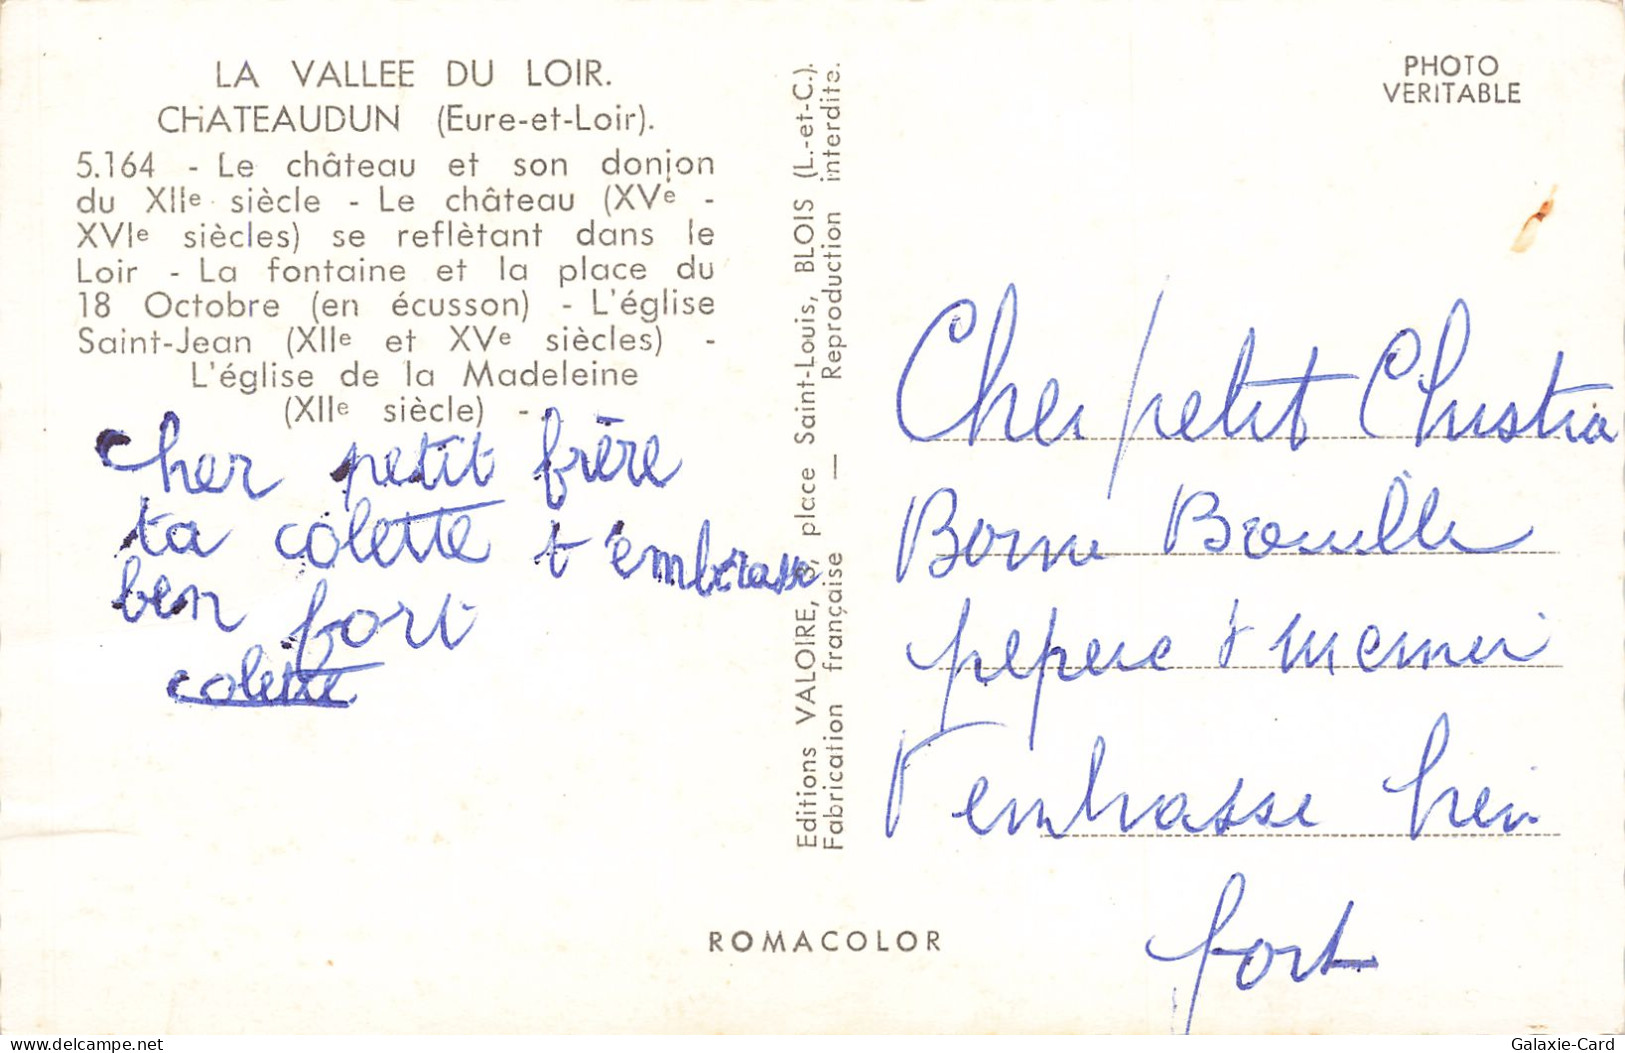 LA VALLEE DU LOIR.
CHATEAUDUN (Eure-et-Loir).
5.164 - Le château et son donjon
du XIIe siècle - Le château (XVe -
XVIe siècles) se reflètant dans le
Loir - La fontaine et la place du
18 Octobre (en écusson) - L'église
Saint-Jean (XIIe et XVe siècles) -
L'église de la Madeleine
(XIIe siècle) -
cher petit frère
ta colette t'embrasse
ben fort
colette
Editions VALOIRE, 8, place Saint-Louis, BLOIS (L.-et-C.).
Fabrication française — Reproduction interdite.
PHOTO
VERITABLE
Cher petit Christia
Bonne
pepere et memer
t'embrasse bien
fort
ROMACOLOR
Galaxie-Card
delcampe.net